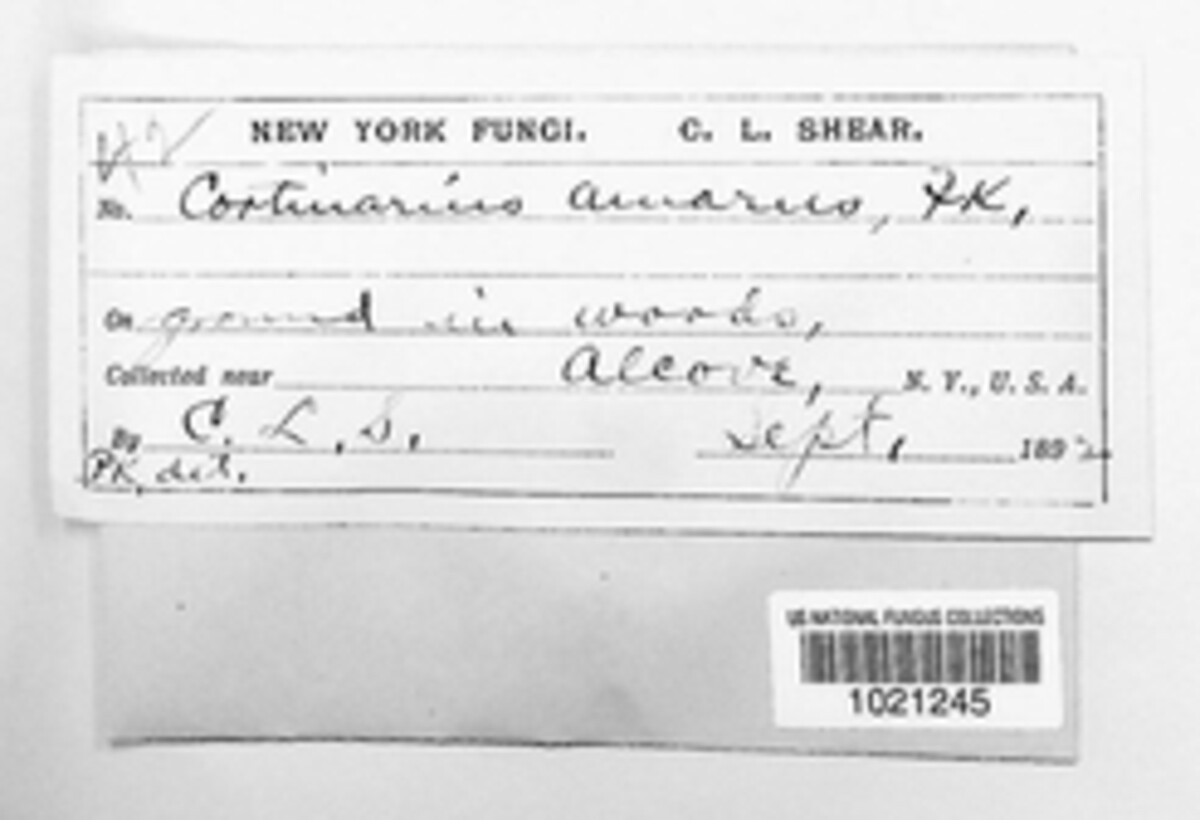 NEW YORK FUNGI. C. L. SHEAR.
No. Cortinarius amarus, Pk,
On ground in woods,
Collected near Alcove, N. Y., U. S. A.
By C. L. S. Sept, 1892
Pk. det.
US NATIONAL FUNGUS COLLECTIONS
1021245